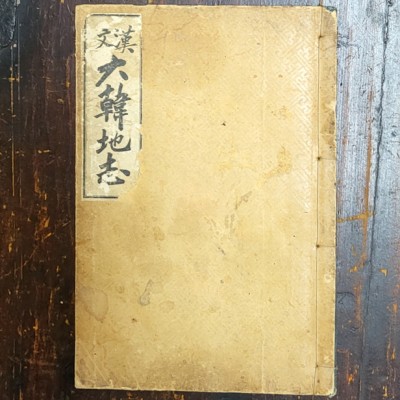 漢文
大韓地志